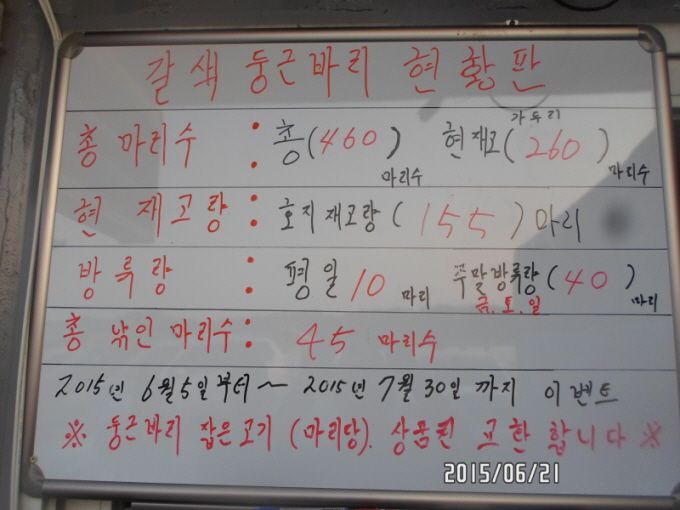 갈색 둥근바리 현황판
가두리
총 마리수 : 총(460)마리수 현재고(260)마리수
현 재고량 : 호지재고량(155)마리
방류량 : 평일 10 마리 주말방류량(40)마리
금.토.일
총 낚인 마리수 : 45 마리수
2015년 6월5일부터~ 2015년 7월 30일 까지 이벤트
※ 둥근바리 잡은고기 (마리당). 상품권 교환 합니다 ※
2015/06/21